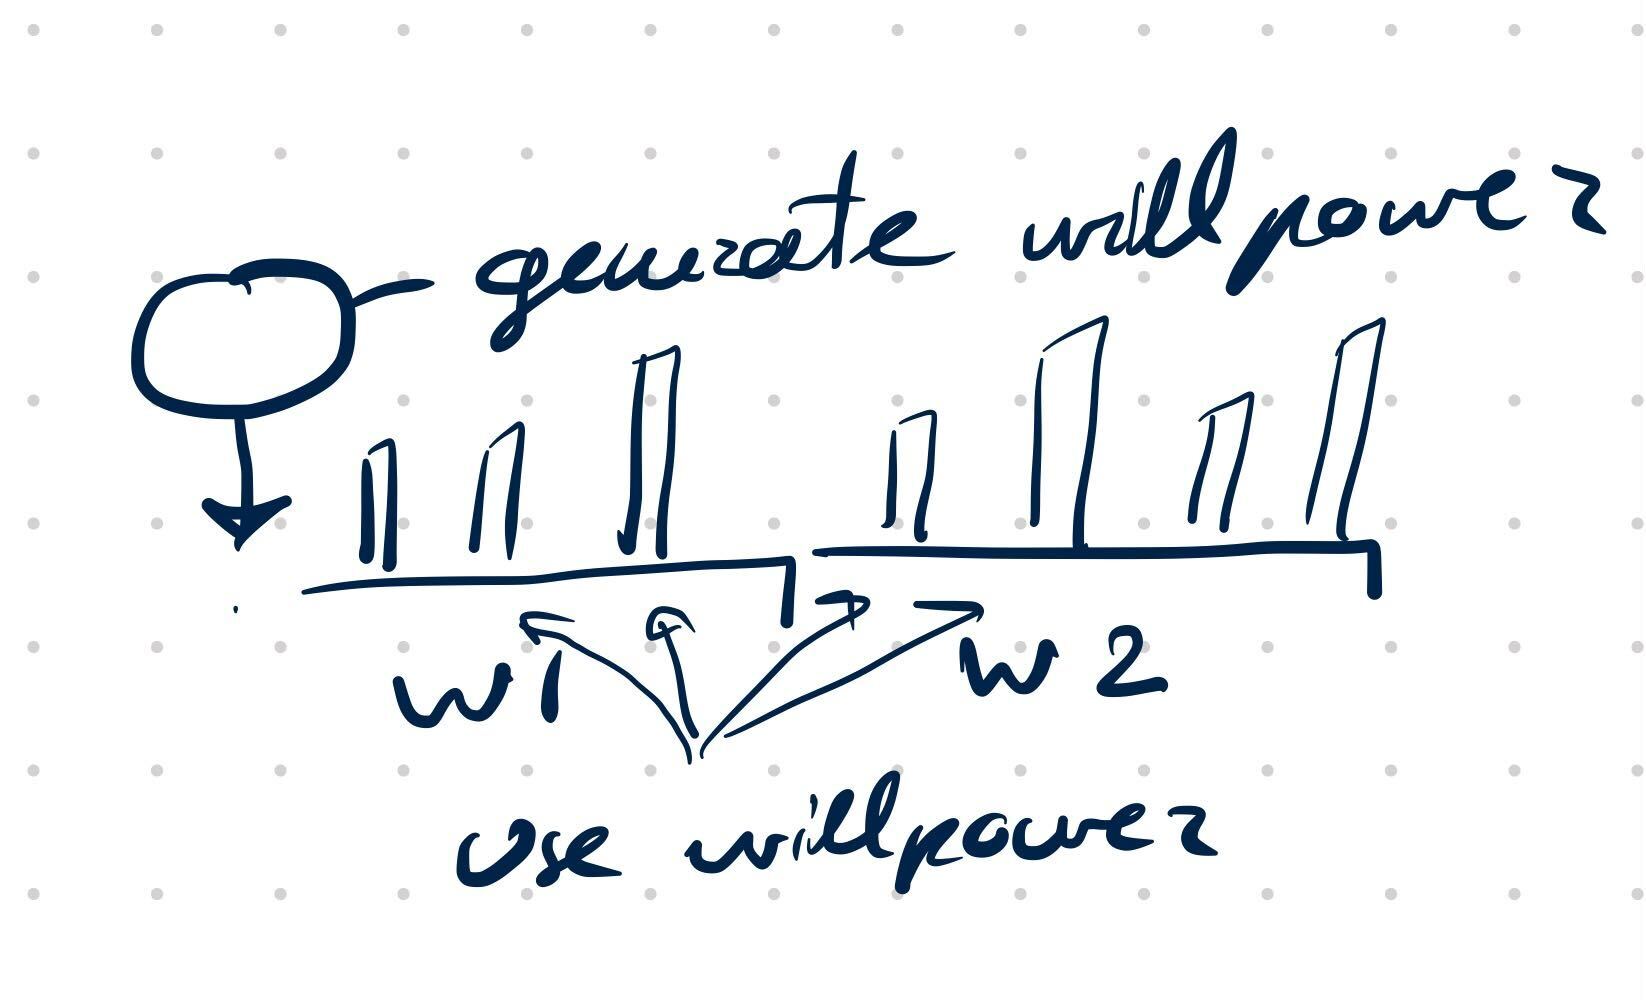 generate willpower
W1
W2
use willpower